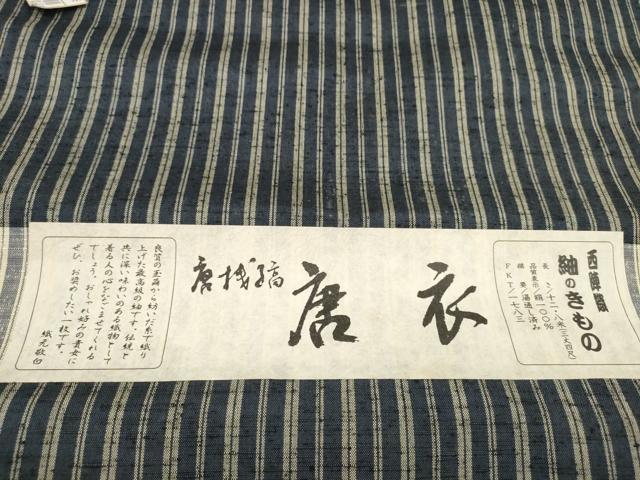 西陣織
紬のきもの
長さ/十二・八米(三丈四尺)
品質表示/絹一〇〇%
摘要/湯通し済み
FKT/一七八三
唐衣
唐桟縞
良質の玉繭から紡いだ糸で織り
上げた最高級の紬です。伝統と
共に深い味わいのある織物として
着る人の心をなごませてくれる
でしょう。おしゃれ好みの貴女に
ぜひ、お奨めしたい一枚です。
織元敬白